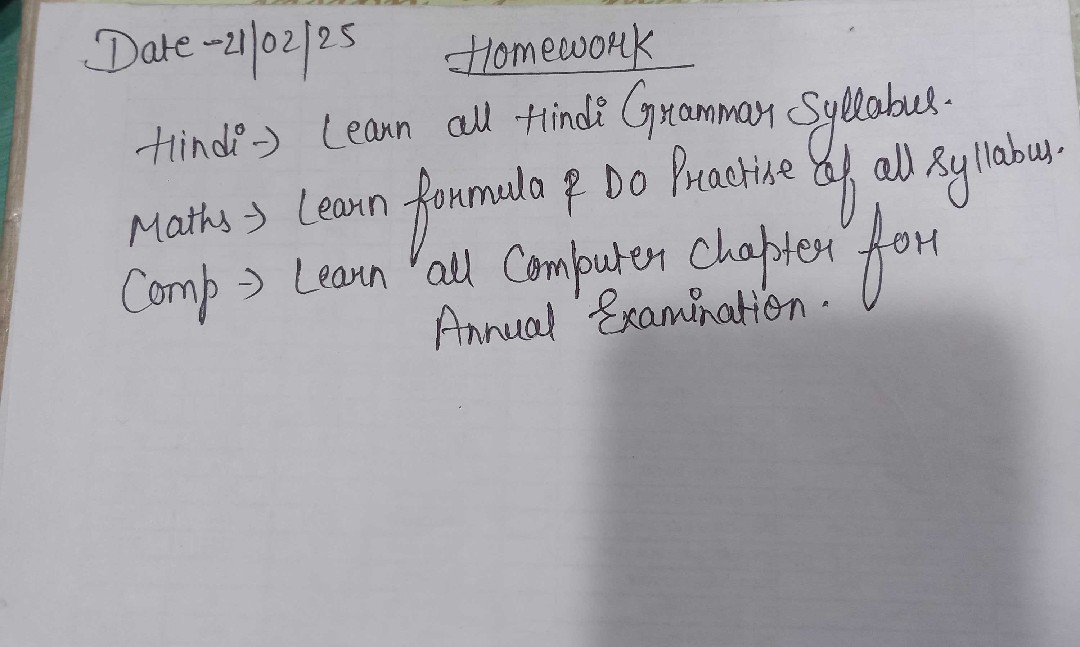 Date - 21/02/25 Homework
Hindi → Learn all Hindi Grammar Syllabus.
Maths → Learn formula & Do Practise of all syllabus.
Comp → Learn all Computer Chapter for
Annual Examination.